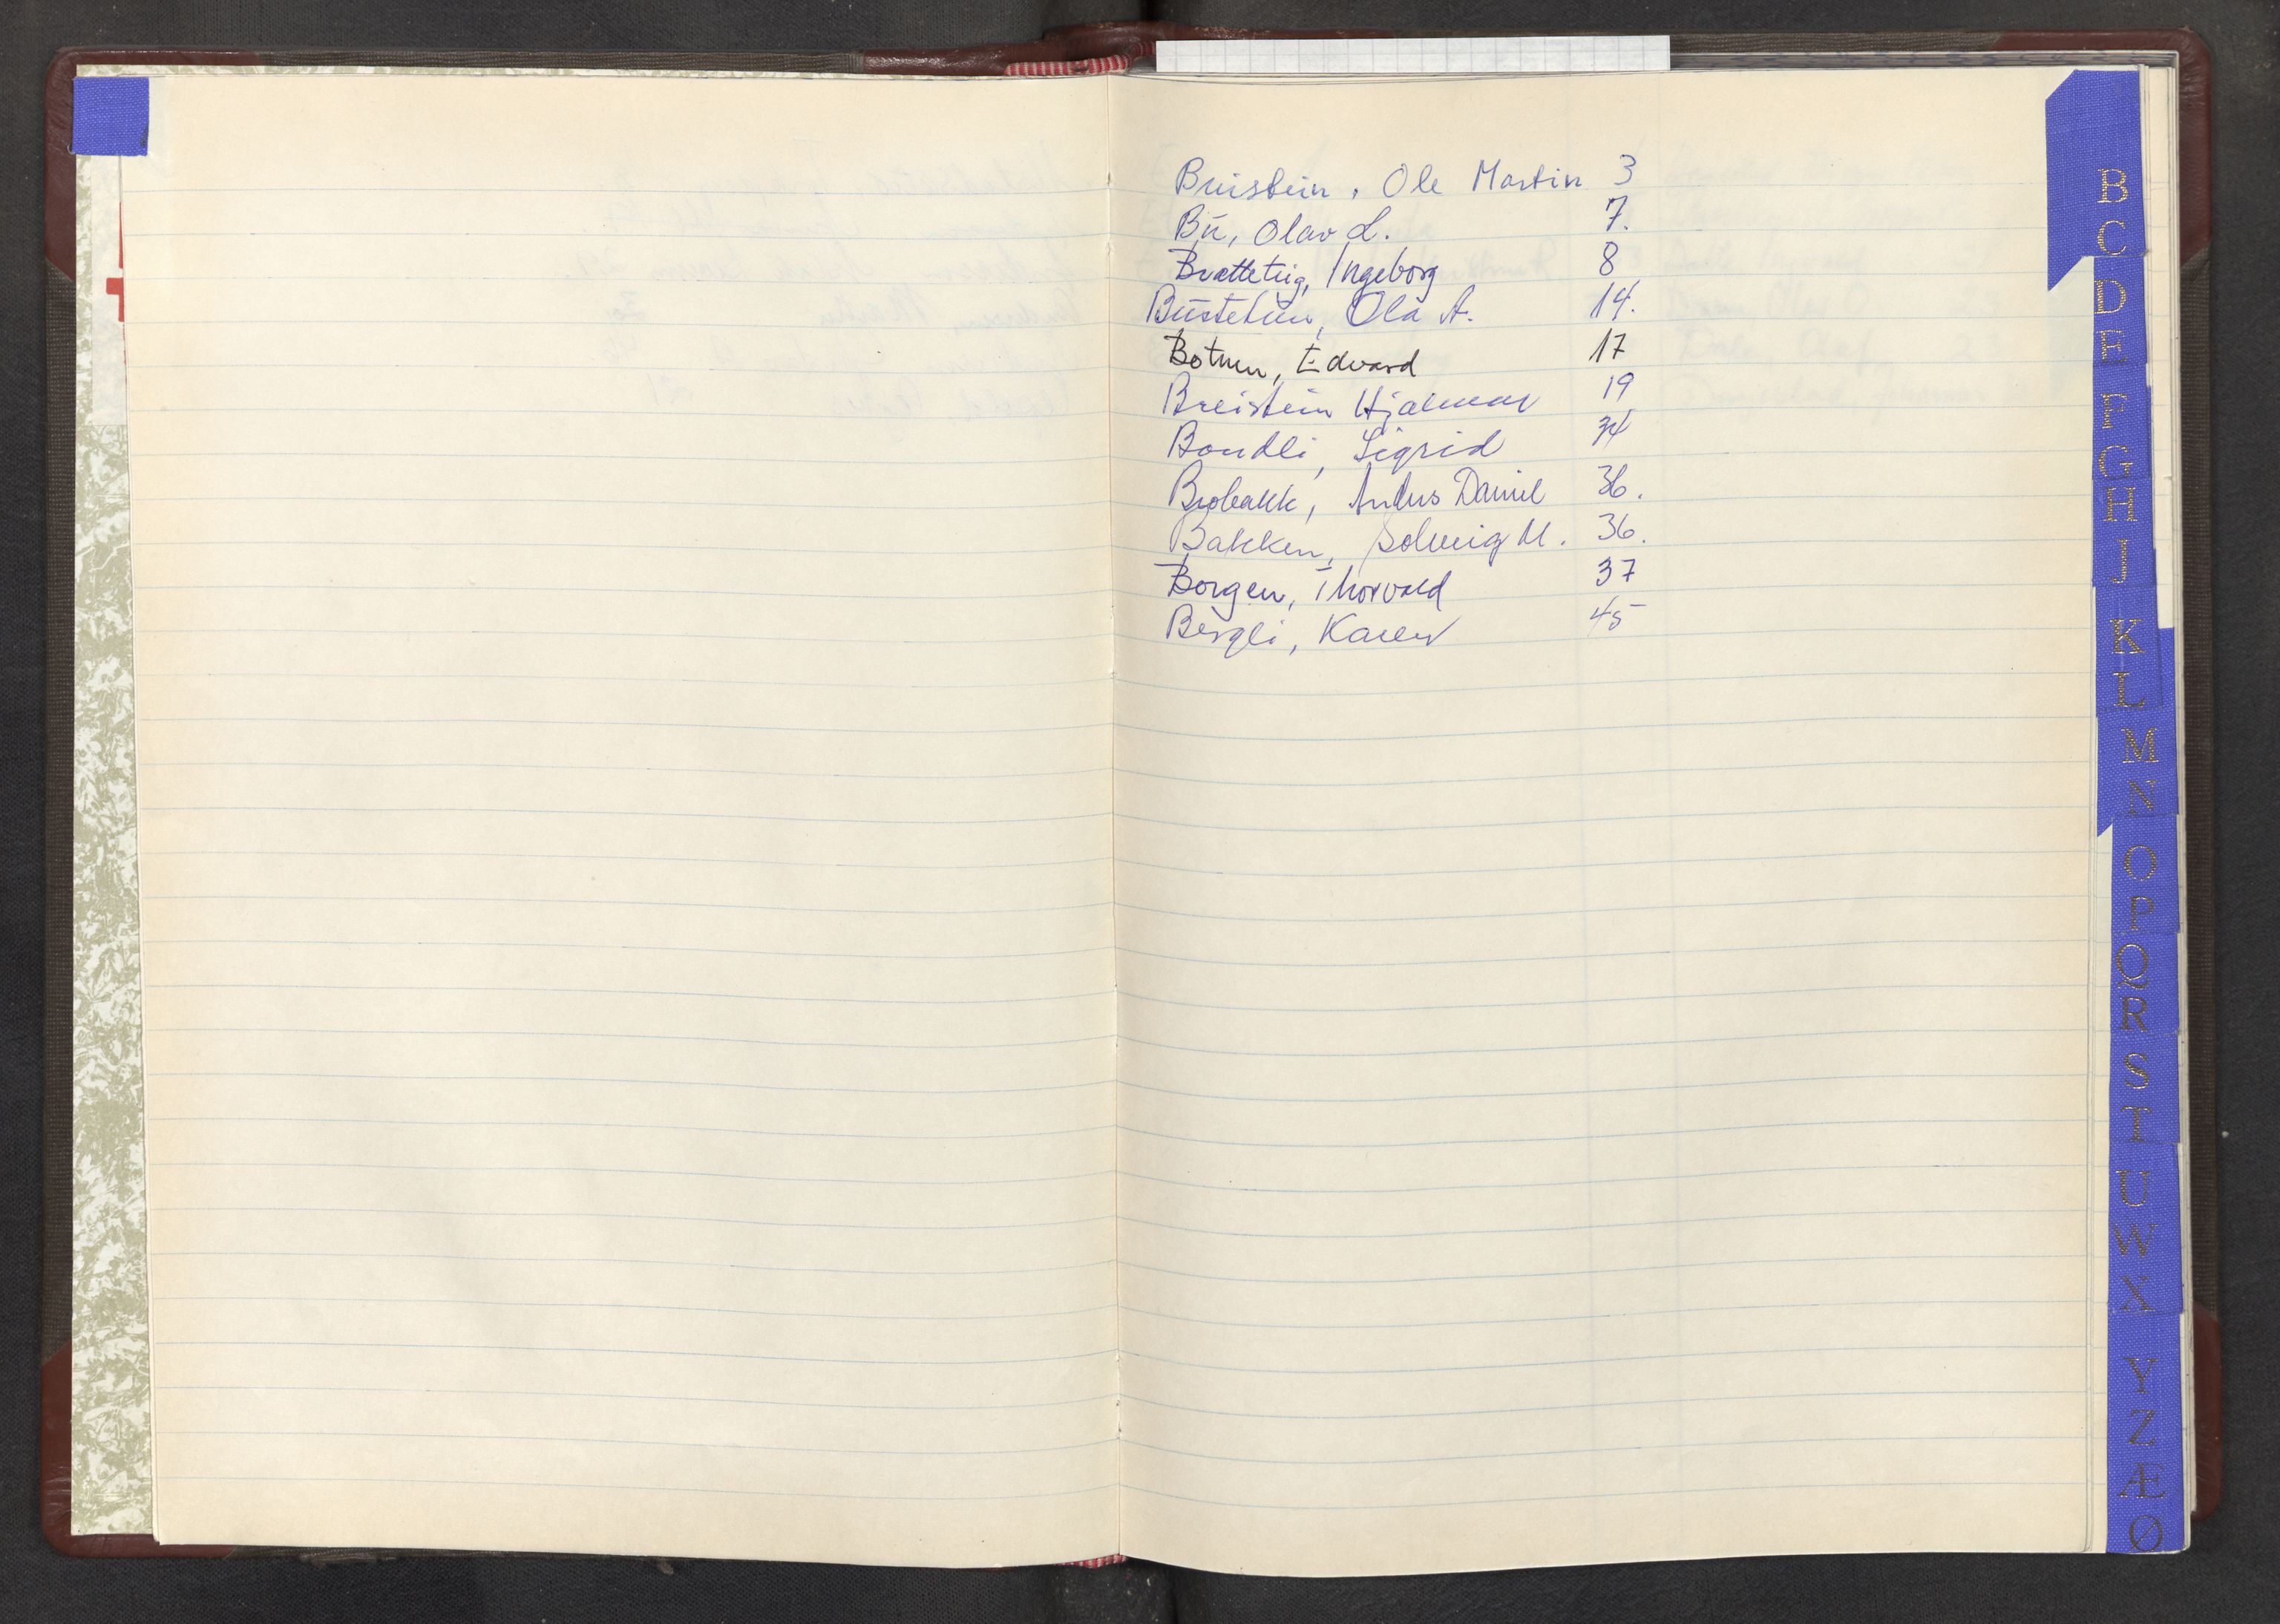 Breistein, Ole Martin 3
Bu, Olav L. 7.
Bratteteig, Ingeborg 8
Bustetun, Ola A. 14.
Botnen, Edvard 17
Breistein Hjalmar 19
Bondli, Sigrid 34
Brobakk, Anders Daniel 36.
Bakken, Solveig M. 36.
Borgen, Thorvald 37
Bergli, Karen 45
B
C
D
E
F
G
H
I
K
L
M
N
O
P
Q
R
S
T
U
W
X
Y
Z
Æ
Ø